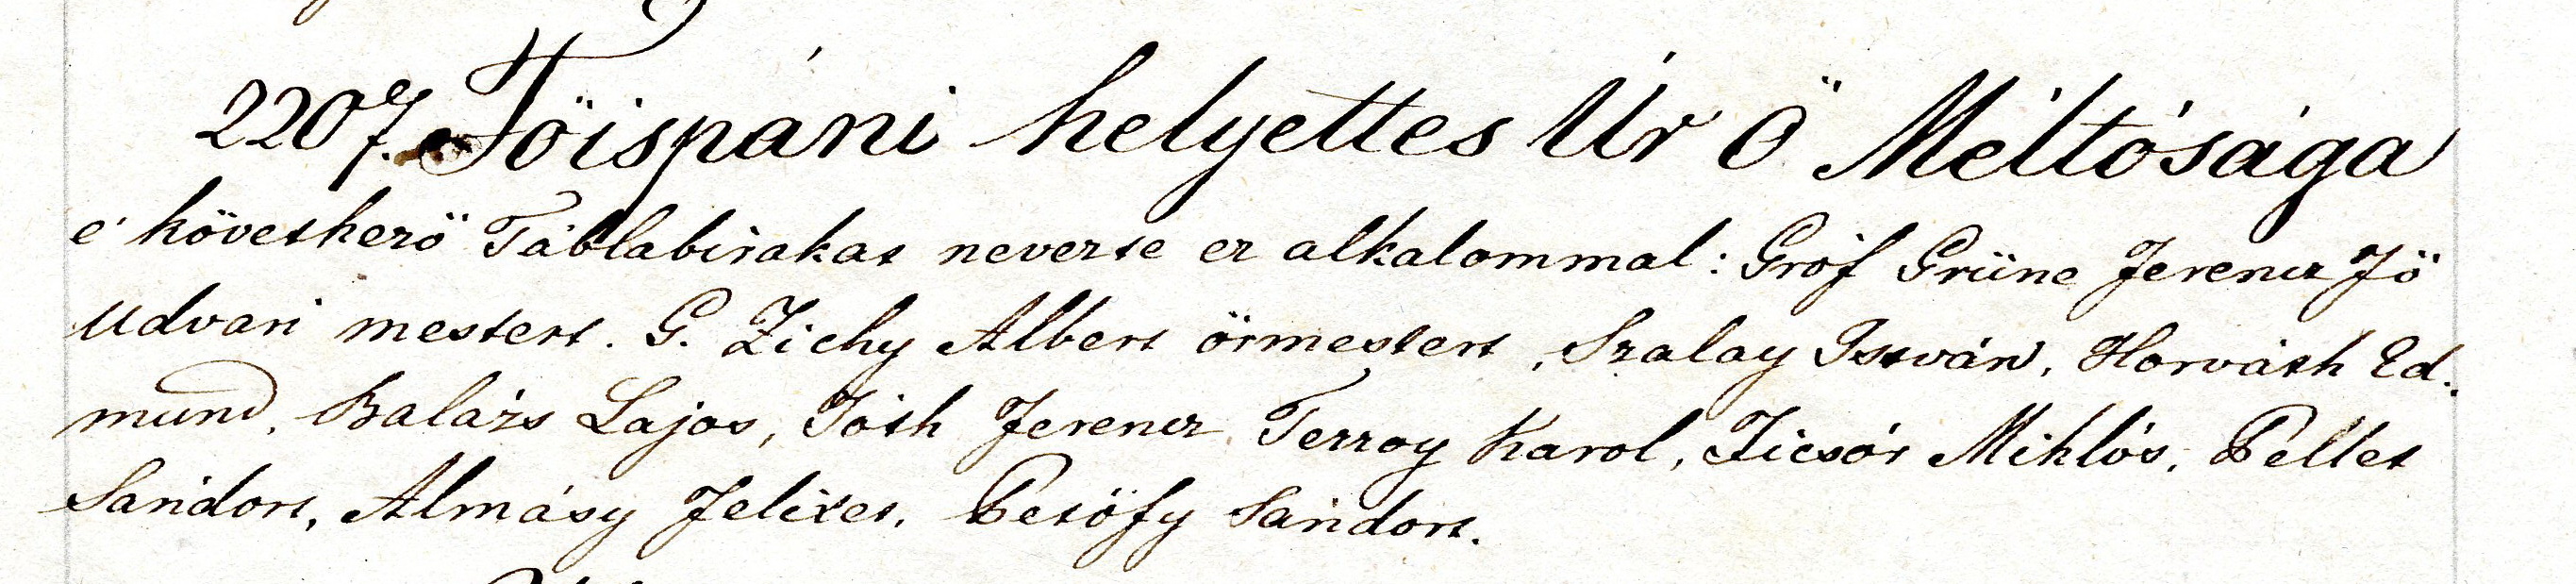 2207. Főispáni helyettes Úr Ő Méltósága
e' következő Táblabirákat nevezte ez alkalommal: Gróf Grüne Ferencz Fő
Udvari mestert. G. Zichy Albert őrmestert, Szalay István, Horváth Ed-
mund, Balázs Lajos, Tóth Ferencz, Terray Karol, Ficsór Miklós, Pellet
Sándort, Almásy Felixet, Petőfy Sándort.